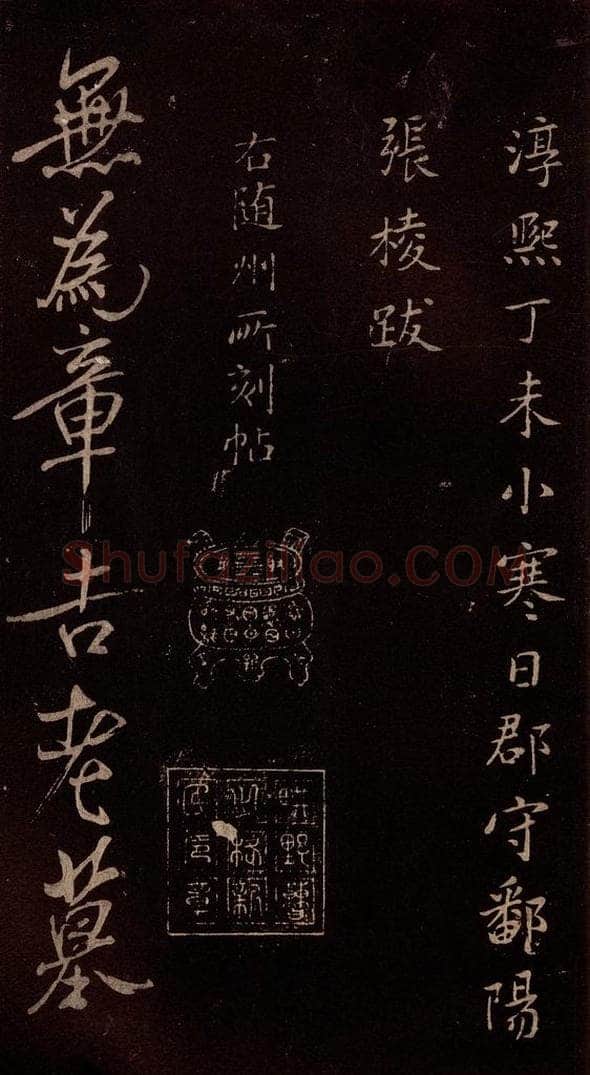 淳熙丁未小寒日郡守鄱陽
張棱跋
右随州所刻帖
無為章吉老墓
Shufaziliao.COM